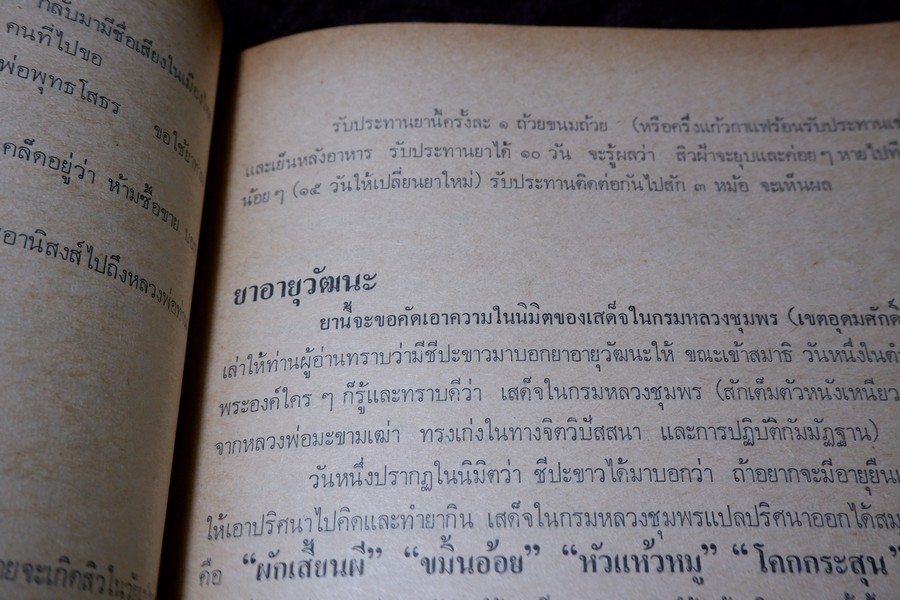 กลับมามีชื่อเสียงในเมือง
คนที่ไปขอ
พ่อพุทธโสธร ขอใช้ยา
คลีดอยู่ว่า ห้ามซื้อขาย
อานิสงส์ไปถึงหลวงพ่อท่าน
ยจะเกิดสิวในวัย
รับประทานยานี้ครั้งละ ๑ ถ้วยขนมถ้วย (หรือครึ่งแก้วกาแฟร้อนรับประทาน
และเย็นหลังอาหาร รับประทานยาได้ ๑๐ วัน จะรู้ผลว่า สิวฝ้าจะยุบและค่อยๆ หายไปที
น้อยๆ (๑๕ วันให้เปลี่ยนยาใหม่) รับประทานติดต่อกันไปสัก ๓ หม้อ จะเห็นผล
ยาอายุวัฒนะ
ยานี้จะขอคัดเอาความในนิมิตของเสด็จในกรมหลวงชุมพร (เขตอุดมศักดิ์
เล่าให้ท่านผู้อ่านทราบว่ามีชีปะขาวมาบอกยาอายุวัฒนะให้ ขณะเข้าสมาธิ วันหนึ่งในตำ
พระองค์ใคร ๆ ก็รู้และทราบดีว่า เสด็จในกรมหลวงชุมพร (สักเต็มตัวหนังเหนียว
จากหลวงพ่อมะขามเฒ่า ทรงเก่งในทางจิตวิปัสสนา และการปฏิบัติกัมมัฏฐาน)
วันหนึ่งปรากฏในนิมิตว่า ชีปะขาวได้มาบอกว่า ถ้าอยากจะมีอายุยืน
ให้เอาปริศนาไปคิดและทำยากิน เสด็จในกรมหลวงชุมพรแปลปริศนาออกได้สม
คือ “ผักเสี้ยนผี” “ขมิ้นอ้อย” “หัวแห้วหมู” “โคกกระสุน”